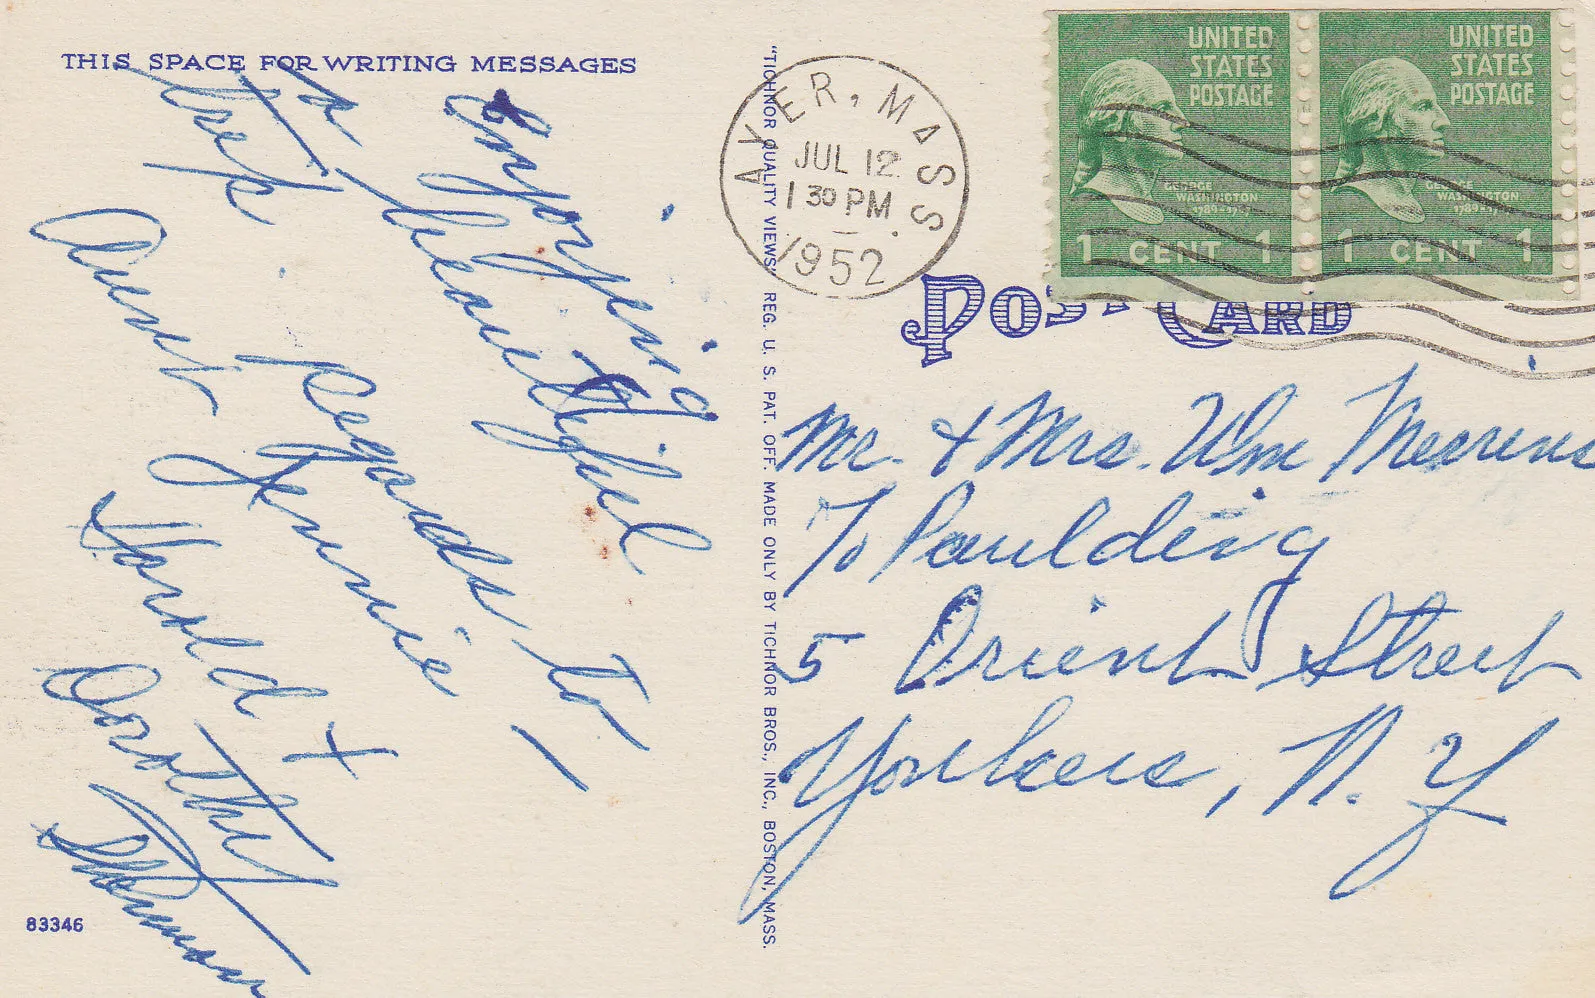 THIS SPACE FOR WRITING MESSAGES
Enjoying
a beautiful
trip.
Regards to
Aunt Jennie –
Harold &
Dorothy
Sherman
83346
"TICHNOR QUALITY VIEWS" REG. U. S. PAT. OFF. MADE ONLY BY TICHNOR BROS., INC., BOSTON, MASS.
AYER, MASS.
JUL 12
1 30 PM
1952
UNITED
STATES
POSTAGE
GEORGE
WASHINGTON
1789-1797
1 CENT 1
UNITED
STATES
POSTAGE
GEORGE
WASHINGTON
1789-17
1 CENT 1
POST CARD
Mr. & Mrs. Wm
% Paulding
5 Orient Street
Yonkers, N. Y